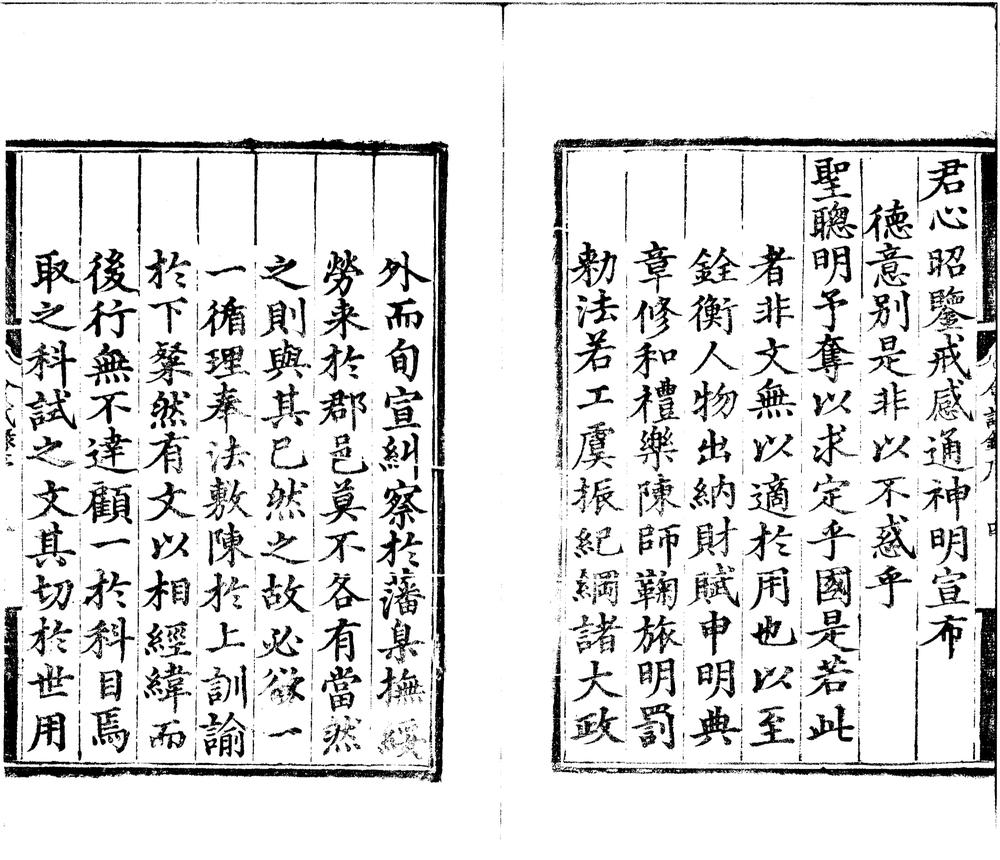 君心昭鑒戒感通神明宣布
德意别是非以不惑乎
聖聰明予奪以求定乎國是若此
者非文無以適於用也以至
銓衡人物出納財賦申明典
章修和禮樂陳師鞠旅明罰
勑法若工虞振紀綱諸大政
外而旬宣糾察於藩臬撫綏
勞来於郡邑莫不各有當然
之則與其已然之故必欲一
一循理奉法敷陳於上訓諭
於下粲然有文以相經緯而
後行無不達顧一於科目焉
取之科試之文其切於世用